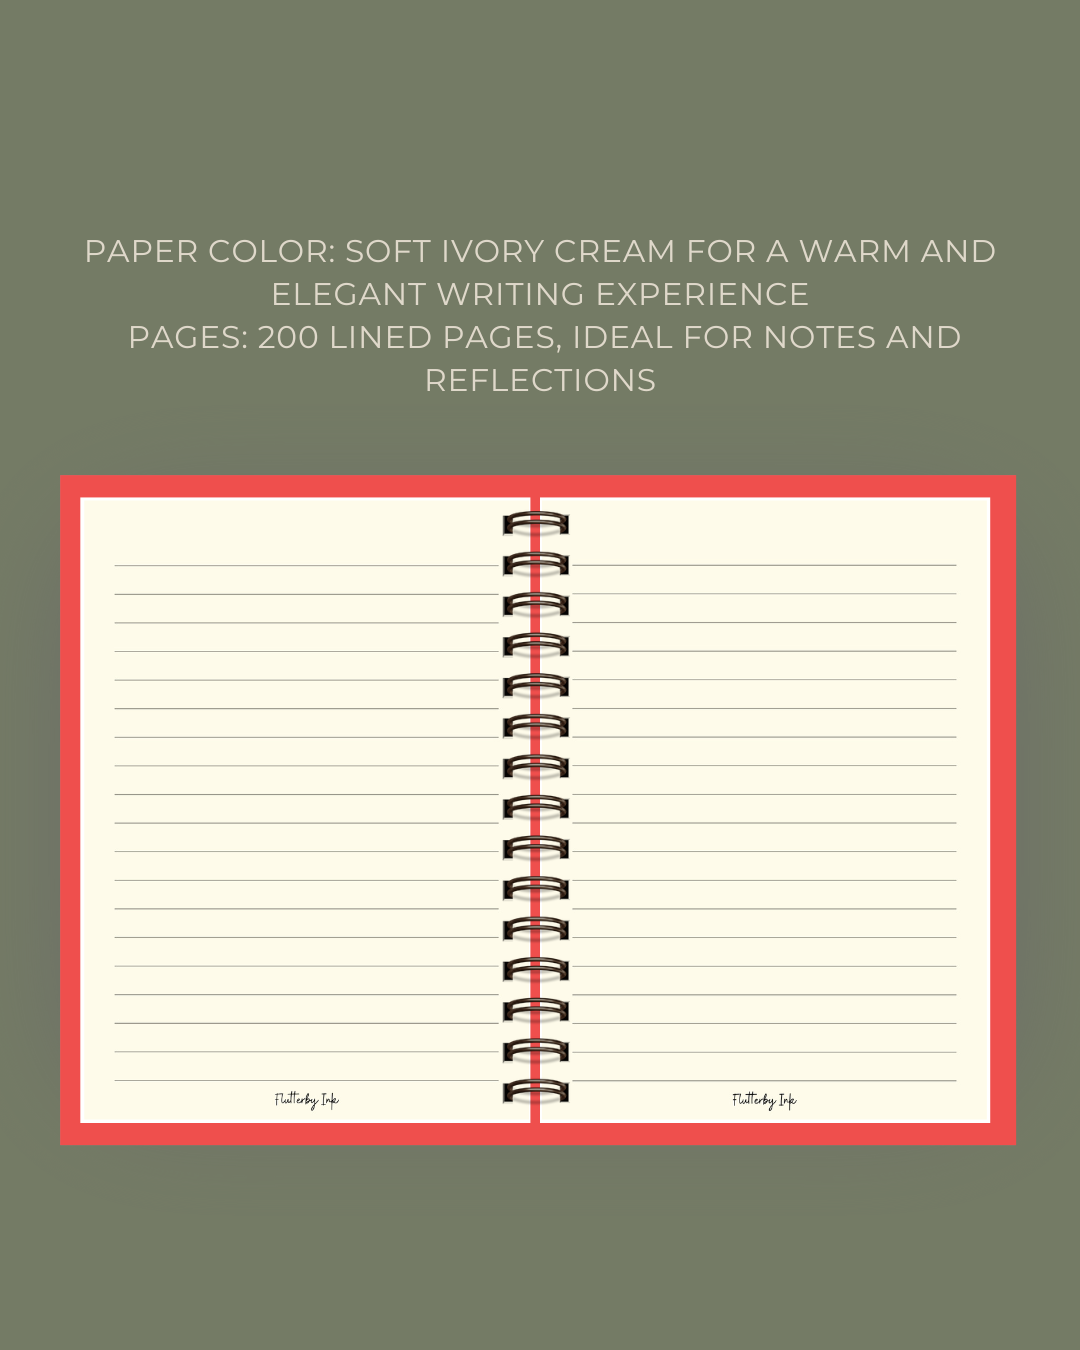 PAPER COLOR: SOFT IVORY CREAM FOR A WARM AND
ELEGANT WRITING EXPERIENCE
PAGES: 200 LINED PAGES, IDEAL FOR NOTES AND
REFLECTIONS
Flutterby Ink
Flutterby Ink